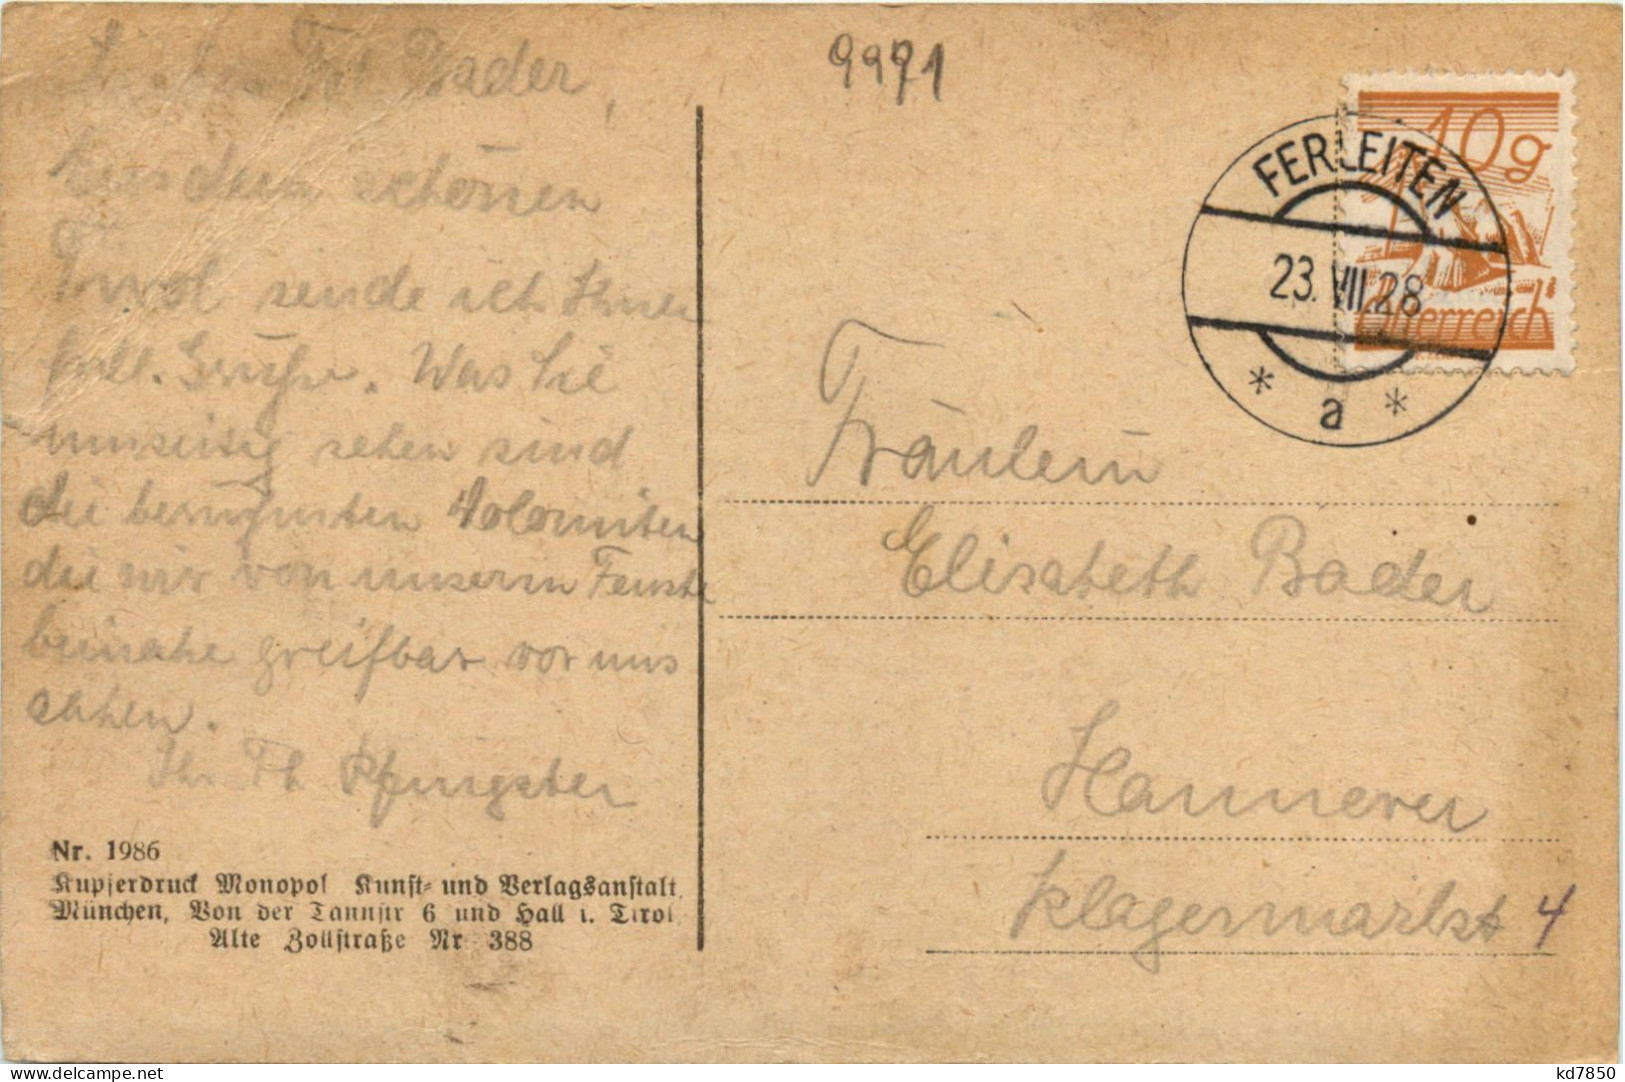 Frl Bader,
Aus dem schönen
Tirol sende ich Ihnen
frdl. Grüße. Was Sie
umseitig sehen sind
die berühmten Dolomiten
die wir von unserm Fenster
beinahe greifbar vor uns
sahen.
Ihr Th Pfingsten
Nr. 1986
Kupferdruck Monopol Kunst- und Verlagsanstalt
München, Von der Tannstr 6 und Hall i. Tirol
Alte Zollstraße Nr 388
9971
10g
Österreich
FERLEITEN
23.VII.28
* a *
Fräulein
Elisabeth Bader
Hannover
Klagesmarkt 4
kd7850
delcampe.net